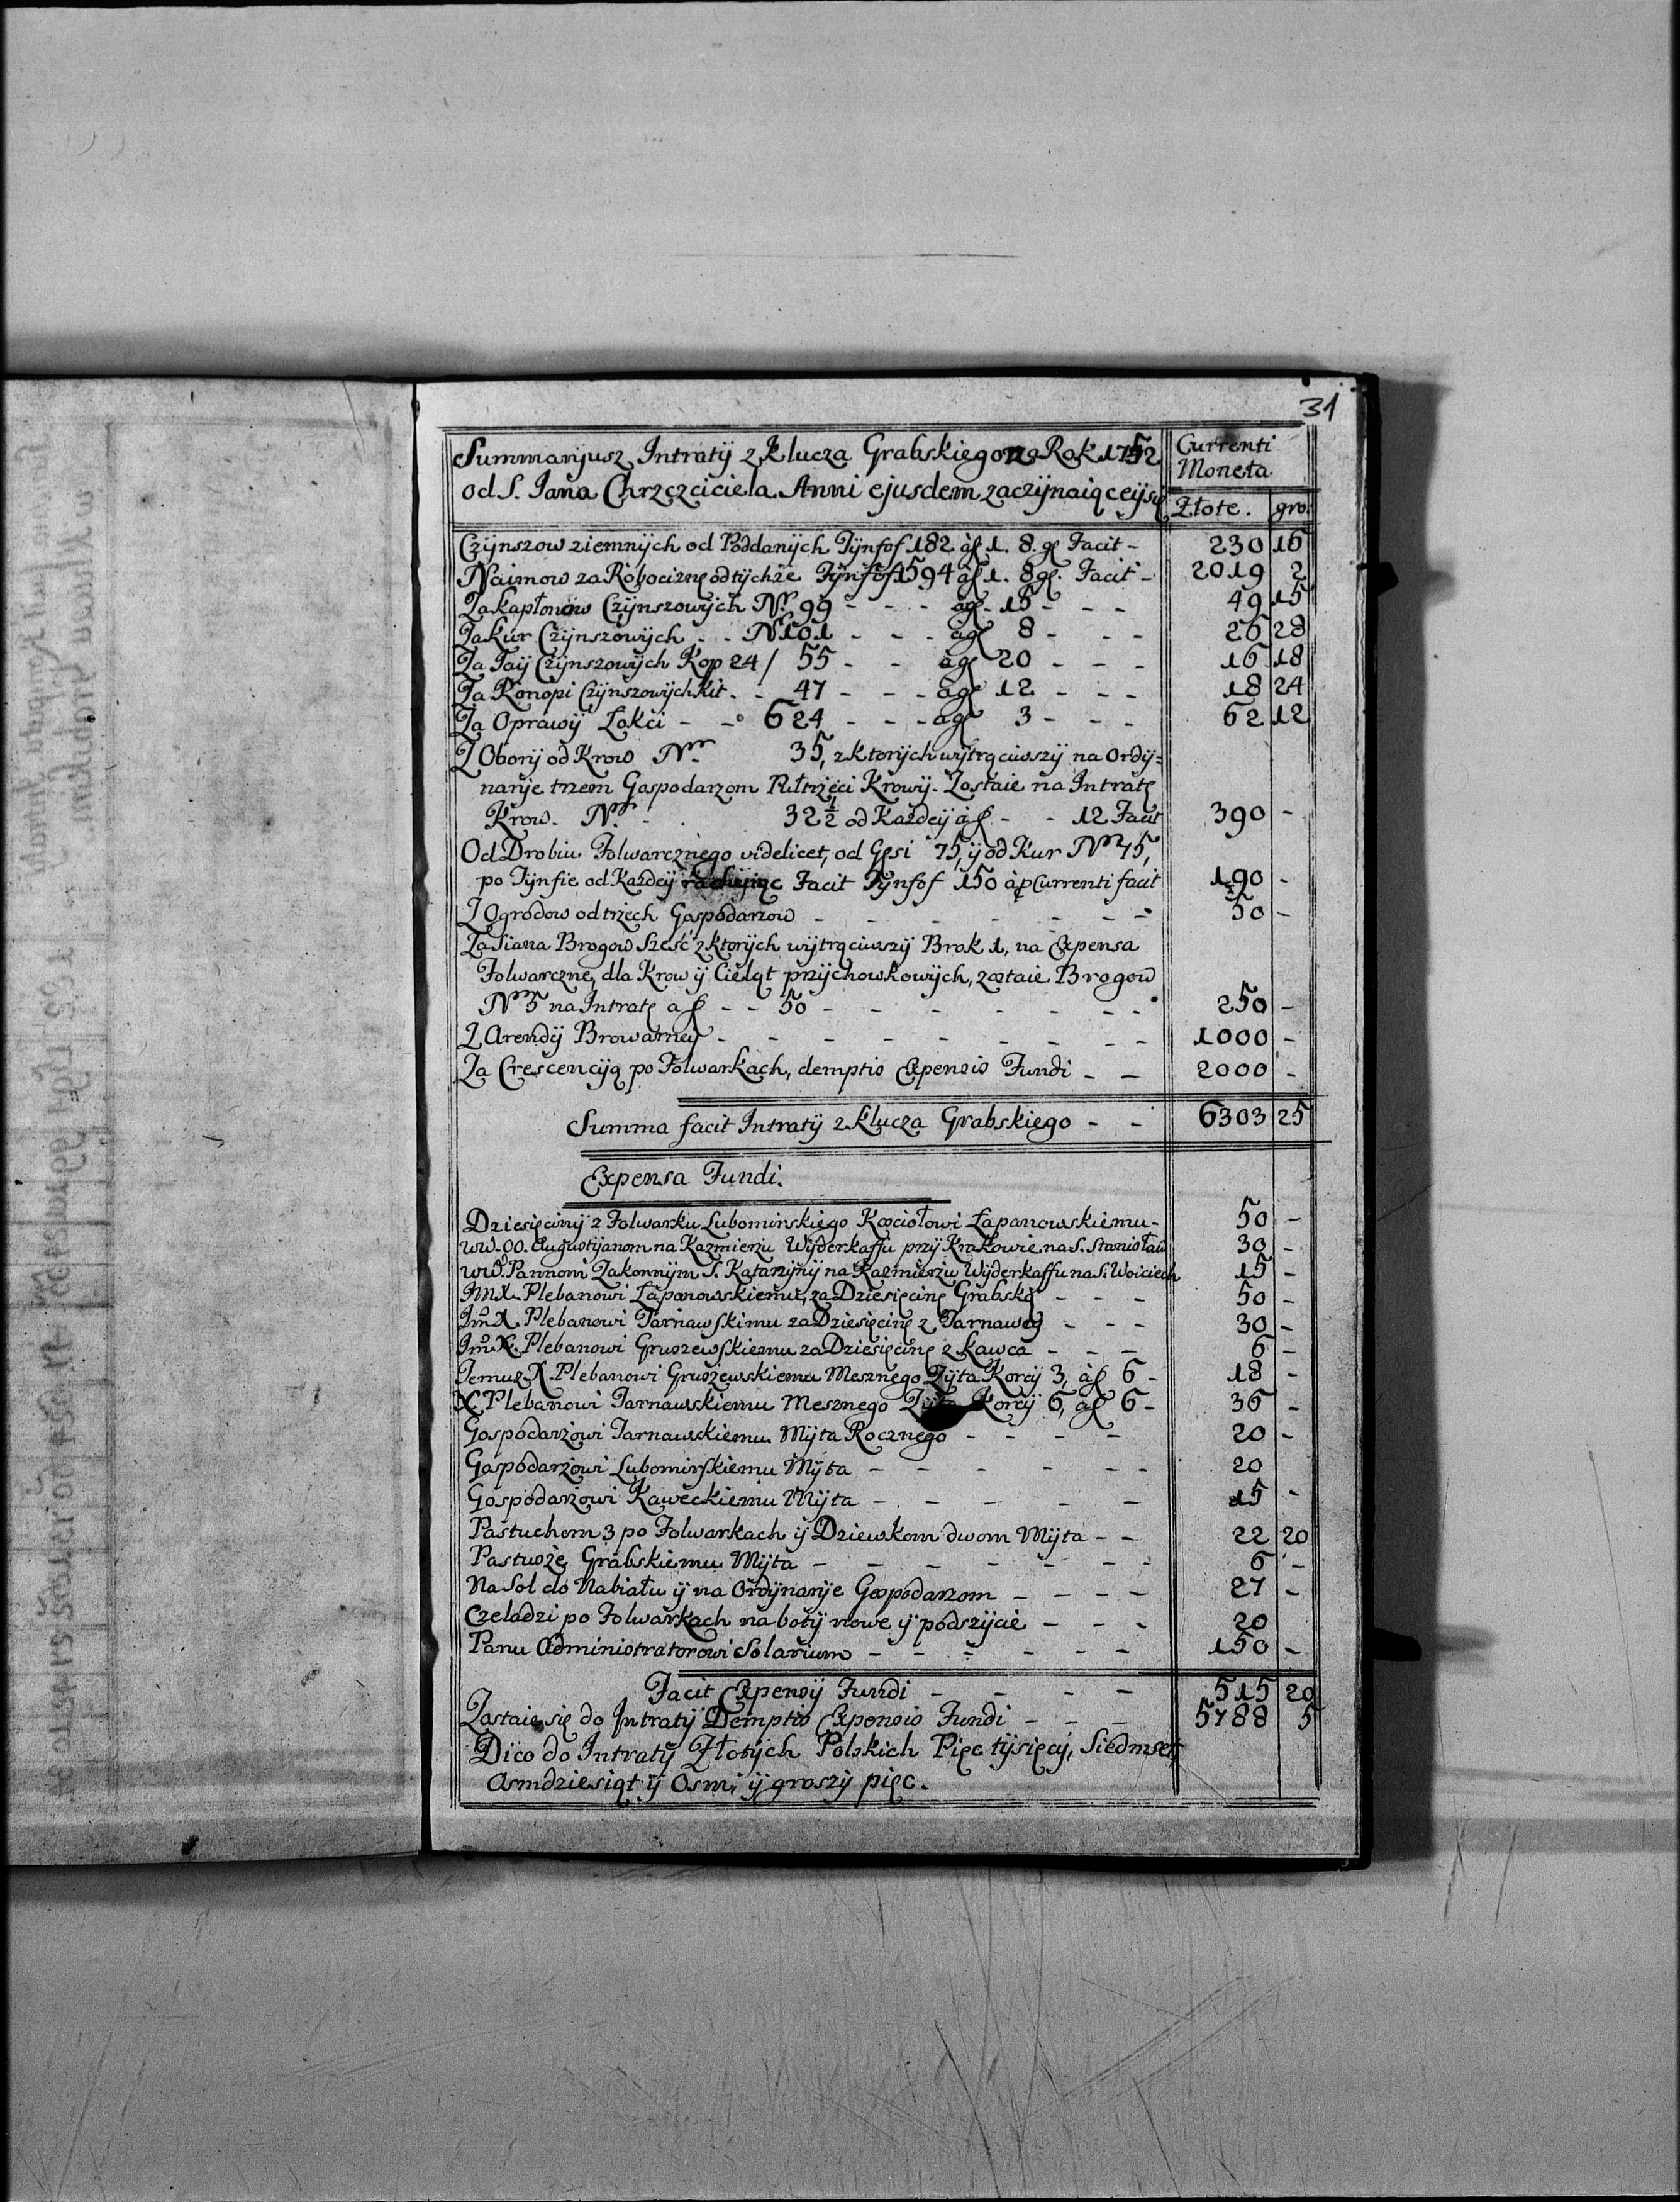 31
Summaryusz Intraty z Klucza Grabskiego na Rok 1752 Currenti
Moneta
od S. Jana Chrzczciciela Anni ejusdem zaczynaiąceÿ się Złote. gro.
Czÿnszow ziemnÿch od Poddanÿch Tÿnfof 182 àf 1. 8. gl Facit - 230 16
Naimow za Robociznę od tÿchże Tÿnfof 1594 àf 1. 8 gl. Facit - 2019 2
Za kapłonow Czÿnszowÿch Nro 99 - - - àgl - 15 - - - 49 15
Za kur Czÿnszowÿch - - Nro 101 - - - àgl 8 - - - 26 28
Za Jaÿ Czÿnszowÿch Kop 24/ 55 - - àgl 20 - - - 16 18
Za Konopi Czÿnszowÿch Kit - - 47 - - - àgl 12 - - - 18 24
Za Oprawÿ Łokci - - 624 - - - àgl 3 - - - 62 12
Z Oborÿ od Krow Nro 35, z ktorÿch wÿtrąciwszÿ na Ordÿ=
narÿe trzem Gospodarzom Pułtrzeci Krowÿ. Zostaie na Intratę
Krow. Nro - 32 1/2 od Każdeÿ àf - - 12 Facit 390 -
Od Drobiu Folwarcznego videlicet, od Gęsi 75, ÿ od Kur Nro 75,
po Tÿnfie od Każdeÿ rachuiąc Facit Tÿnfof 150 àp Currenti facit 190 -
Z Ogrodow od trzech Gospodarzow - - - - - - - 50 -
Za Siana Brogow Sześć z ktorÿch wÿtrąciwszÿ Brok 1, na Expensa
Folwarczne, dla Krow ÿ Cieląt przÿchowkowÿch, zostaie Brogow
Nro 5 na Intratę àf - - 50 - - - - - - - 250 -
Z Arendÿ Browarneÿ - - - - - - - - - 1000 -
Za Crescencÿą po Folwarkach, demptis Expensis Fundi - - 2000 -
Summa facit Intratÿ z Klucza Grabskiego - - 6303 25
Expensa Fundi.
Dziesięcinÿ z Folwarku Lubominskiego Kosciołowi Łapanowskiemu - 50 -
WW. OO. Augustÿanom na Kazmierzu Wÿderkaffu przÿ Krakowie na S. Stanisław 30 -
WW. Pannom Zakonnÿm S. Katarzÿnÿ na Kazmierzu Wÿderkaffu na S. Woiciech 15 -
JmX. Plebanowi Łapanowskiemu, za Dziesięcinę Grabską - - - 50 -
JmX. Plebanowi Tarnawskimu za Dziesięcinę z Tarnawÿ - - - 30 -
JmX. Plebanowi Gruszewskiemu za Dziesięcinę z Kawca - - - 6 -
Temuż X. Plebanowi Gruszewskiemu Mesznego Żÿta Korcÿ 3, àf 6 - 18 -
X. Plebanowi Tarnawskiemu Mesznego Żÿta Korcÿ 6, àf 6 - 36 -
Gospodarzowi Tarnawskiemu Mÿta Rocznego - - - - 20 -
Gospodarzowi Lubomirskiemu Mÿta - - - - - - 20
Gospodarzowi Kaweckiemu Mÿta - - - - - 15 -
Pastuchom 3 po Folwarkach ÿ Dziewkom dwom Mÿta - - 22 20
Pastusze Grabskiemu Mÿta - - - - - - - 6 -
Na Sol do Nabiału ÿ na Ordÿnarÿe Gospodarzom - - - - 27 -
Czeladzi po Folwarkach na botÿ nowe ÿ podszÿcie - - - 20
Panu Administratorowi Solarium - - - - - - 150 -
Facit Expensÿ Fundi - - - - 515 20
Zostaie się do Intratÿ Demptis Expensis Fundi - - - 5788 5
Dico do Intratÿ Złotÿch Polskich Pięc tÿsięcÿ, Siedmset
Osmdziesiąt ÿ Osm, ÿ groszÿ pięc.